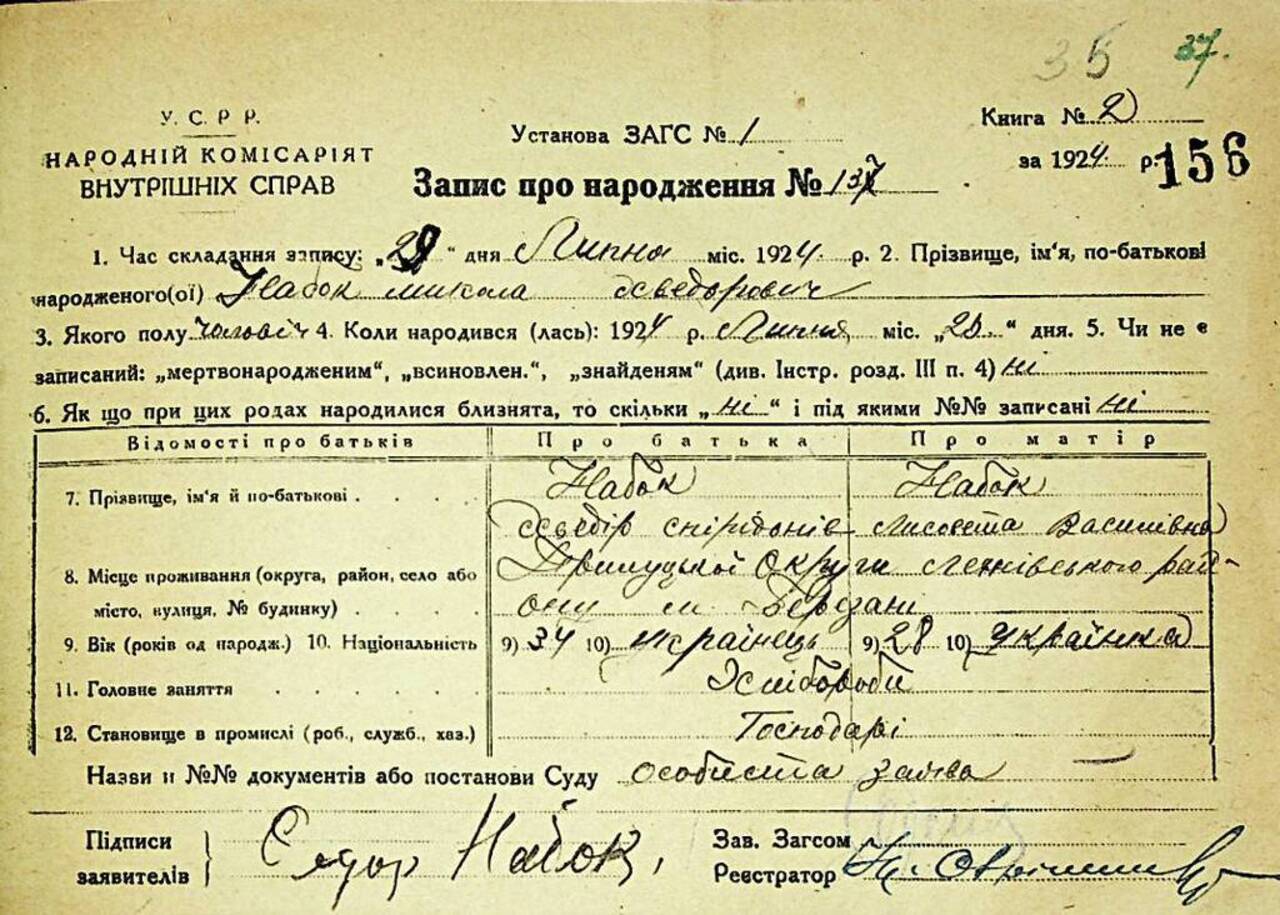 35 37.
У. С. Р Р.
НАРОДНІЙ КОМІСАРІЯТ
ВНУТРІШНІХ СПРАВ
Установа ЗАГС № 1
Книга № 2
за 1924 р. 156
Запис про народження № 137
1. Час складання запису: „29“ дня Липня міс. 1924 р. 2. Прізвище, ім'я, по-батькові
народженого(ої) Набок микола хведорович
3. Якого полу чоловіч 4. Коли народився (лась): 1924 р. Липня міс. „28.“ дня. 5. Чи не є
записаний: „мертвонародженим“, „всиновлен.“, „знайденям“ (див. Інстр. розд. III п. 4) ні
6. Як що при цих родах народилися близнята, то скільки „ні“ і під якими №№ записані ні
Відомості про батьків Про батька Про матір
7. Прізвище, ім'я й по-батькові . . . . Набок Набок
хведір спірідонів лисовета Василівна
8. Місце проживання (округа, район, село або Прилуцької Округи рай-
місто, вулиця, № будинку) . . . . ону м Березані
9. Вік (років од народж.) 10. Національність 9) 34 10) українець 9) 28 10) українка
11. Головне заняття . . . . . . Хліборобі
12. Становище в промислі (роб., служб., хаз.) Господарі
Назви й №№ документів або постанови Суду особиста заява
Підписи
заявителів
Сидор Набок,
Зав. Загсом
Реєстратор